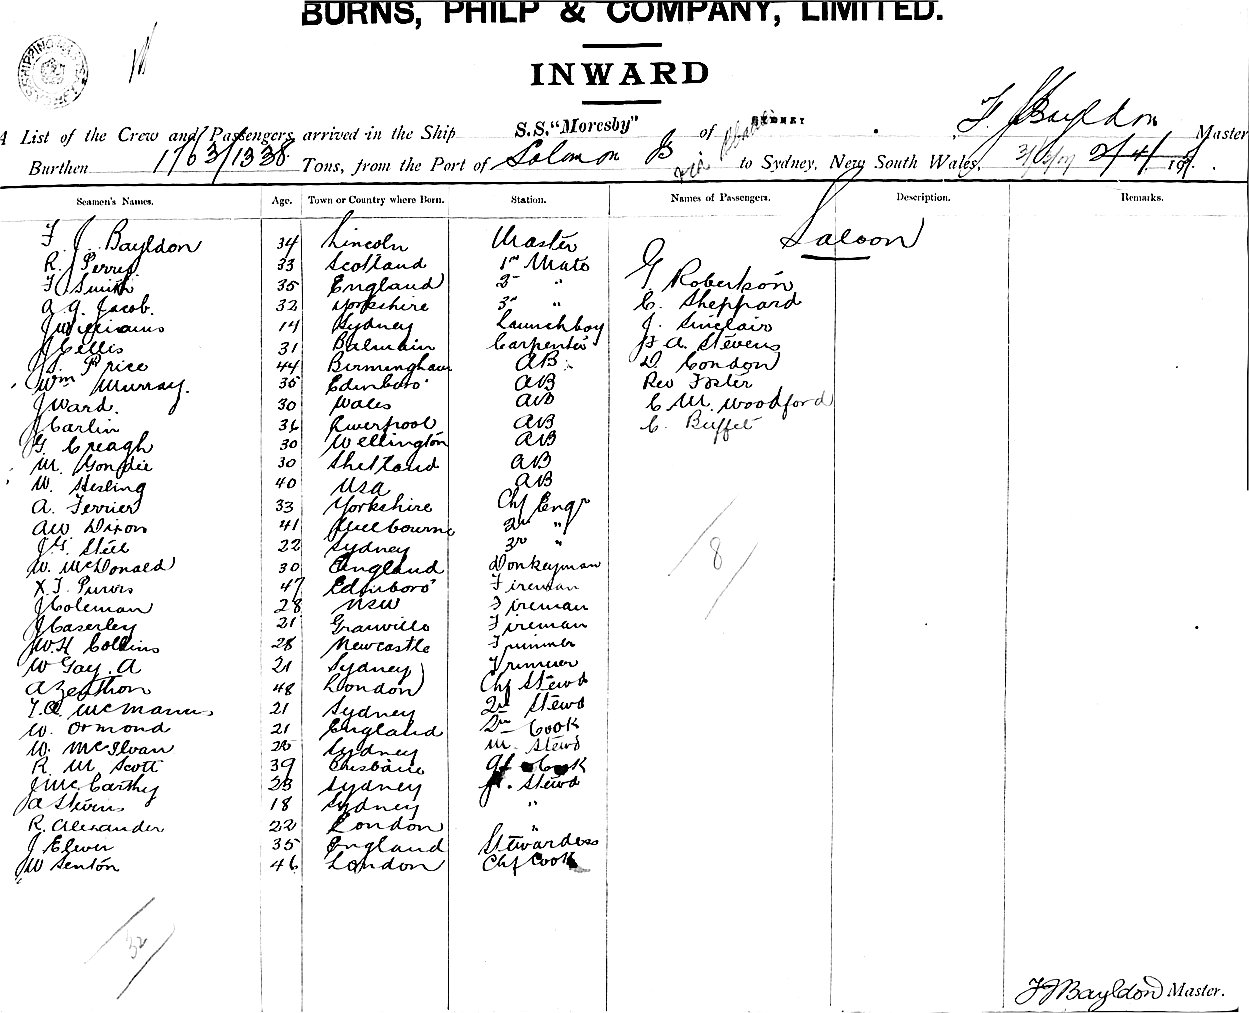 BURNS, PHILP & COMPANY, LIMITED.
INWARD
A List of the Crew and Passengers, arrived in the Ship S.S. "Moresby" of SYDNEY F. J. Bayldon Master
Burthen 1763/1338 Tons, from the Port of Solomon to Sydney, New South Wales, 2/4/ 19
Seamen's Names. Age. Town or Country where Born. Station. Names of Passengers. Description. Remarks.
Saloon
F. J. Bayldon 34 Lincoln Master
R. Perry 33 Scotland 1st Mate G. Robertson
F Smith 35 England 2nd " C. Sheppard
A. G. Jacob. 32 Yorkshire 3rd " J. Sinclair
J Williams 14 Sydney Launchboy A. Stevens
J Cellis 31 Balmain Carpenter D. Condon
J. Price 44 Birmingham AB Rev Foster
Wm Murray. 35 Edinboro' AB C. M. Woodford
J Ward. 30 Wales AB C. Buffet
J Carlin 36 Liverpool AB
G. Creagh 30 Wellington AB
M. Goudie 30 Shetland AB
W. Hesling 40 USA AB
A. Ferrier 33 Yorkshire Chf Engr
AW Dixon 41 Melbourne 2nd "
J.G. Steel 22 Sydney 3rd "
W. McDonald 30 England Donkeyman
X. T. Purvis 47 Edinboro' Fireman
J Coleman 28 NSW Fireman
J Caserley 21 Granville Fireman
W.H Collins 28 Newcastle Trimmer
W Gay. A 21 Sydney Trimmer
48 London Chf Stewd
McManus 21 Sydney 2nd Stewd
W. Ormond 21 England 2nd Cook
W. McIlvan Sydney M. Stewd
R. M Scott 39 Brisbane Cook
J McCarthy 23 Sydney Stewd
18 Sydney "
R. Alexander 22 London "
J Elwer 35 England Stewardess
W Senton 46 London Chf Cook
8
32
F J Bayldon Master.